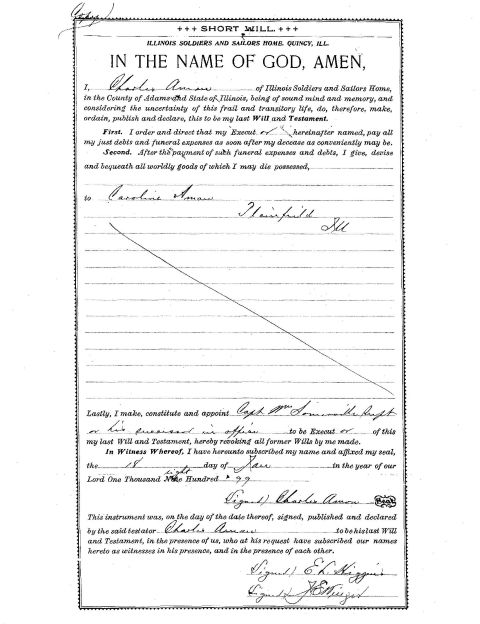 Copy
+++ SHORT WILL. +++
ILLINOIS SOLDIERS AND SAILORS HOME. QUINCY, ILL.
IN THE NAME OF GOD, AMEN,
I, Charles Amon of Illinois Soldiers and Sailors Home,
in the County of Adams and State of Illinois, being of sound mind and memory, and
considering the uncertainty of this frail and transitory life, do, therefore, make,
ordain, publish and declare, this to be my last Will and Testament.
First. I order and direct that my Execut or hereinafter named, pay all
my just debts and funeral expenses as soon after my decease as conveniently may be.
Second. After the payment of such funeral expenses and debts, I give, devise
and bequeath all worldly goods of which I may die possessed,
to Caroline Amon
Plainfield
Ill
Lastly, I make, constitute and appoint Capt Wm Somerville Supt
or his successor in office to be Execut or of this
my last Will and Testament, hereby revoking all former Wills by me made.
In Witness Whereof, I have hereunto subscribed my name and affixed my seal,
the 18 day of in the year of our
eight
Lord One Thousand Nine Hundred 99
Signed) Charles Amon Seal
This instrument was, on the day of the date thereof, signed, published and declared
by the said testator Charles Amon to be his last Will
and Testament, in the presence of us, who at his request have subscribed our names
hereto as witnesses in his presence, and in the presence of each other.
Signed) E. L. Higgins
Signed)